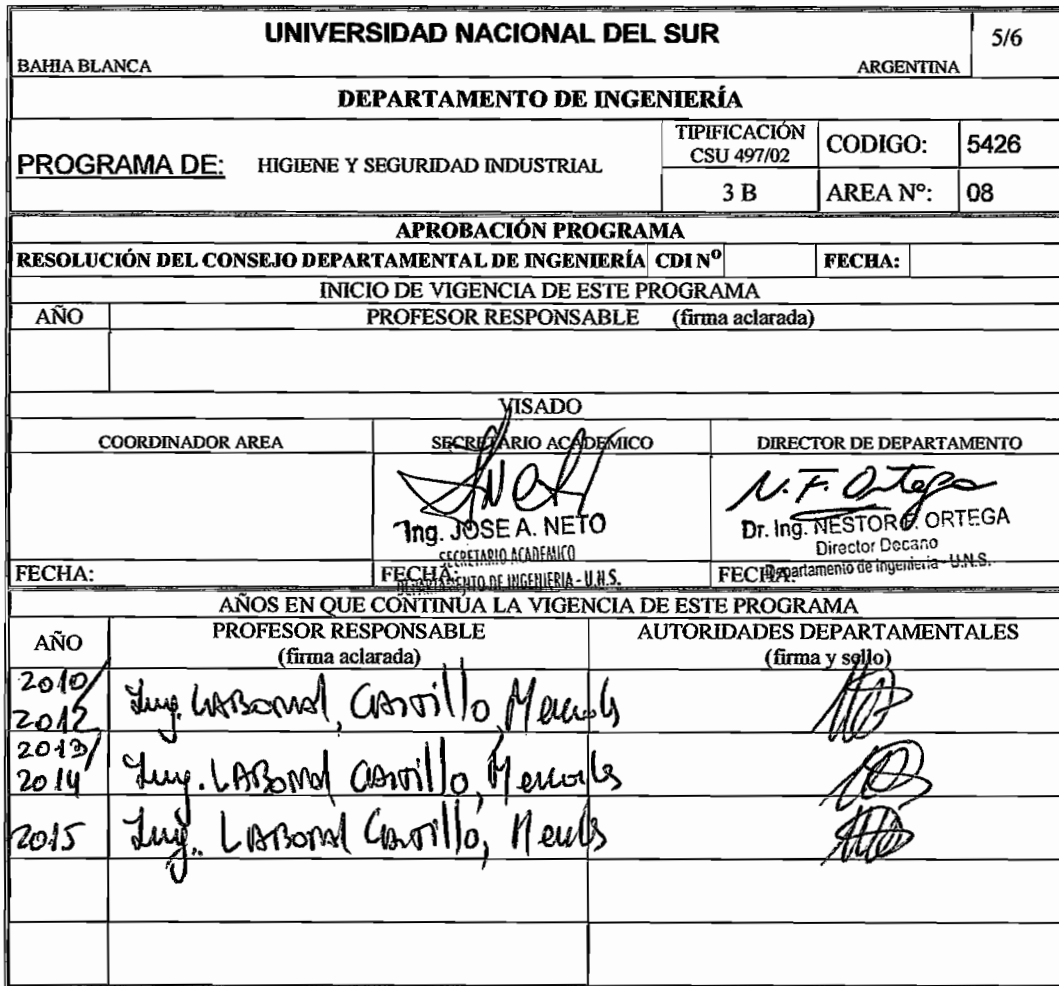 UNIVERSIDAD NACIONAL DEL SUR
5/6
BAHIA BLANCA ARGENTINA
DEPARTAMENTO DE INGENIERÍA
PROGRAMA DE: HIGIENE Y SEGURIDAD INDUSTRIAL
TIPIFICACIÓN CSU 497/02
CODIGO: 5426
3 B
AREA Nº: 08
APROBACIÓN PROGRAMA
RESOLUCIÓN DEL CONSEJO DEPARTAMENTAL DE INGENIERÍA CDI Nº FECHA:
INICIO DE VIGENCIA DE ESTE PROGRAMA
AÑO PROFESOR RESPONSABLE (firma aclarada)
VISADO
COORDINADOR AREA SECRETARIO ACADEMICO DIRECTOR DE DEPARTAMENTO
N. F. Ortega
Ing. JOSE A. NETO
SECRETARIO ACADEMICO
DEPARTAMENTO DE INGENIERIA - U.N.S.
Dr. Ing. NESTOR F. ORTEGA
Director Decano
Departamento de Ingeniería - U.N.S.
FECHA: FECHA: FECHA:
AÑOS EN QUE CONTINUA LA VIGENCIA DE ESTE PROGRAMA
AÑO PROFESOR RESPONSABLE (firma aclarada) AUTORIDADES DEPARTAMENTALES (firma y sello)
2010/2012 Ing. LABORAL, Castillo,
2013/2014 Ing. LABORAL Castillo,
2015 Ing. LABORAL Castillo,